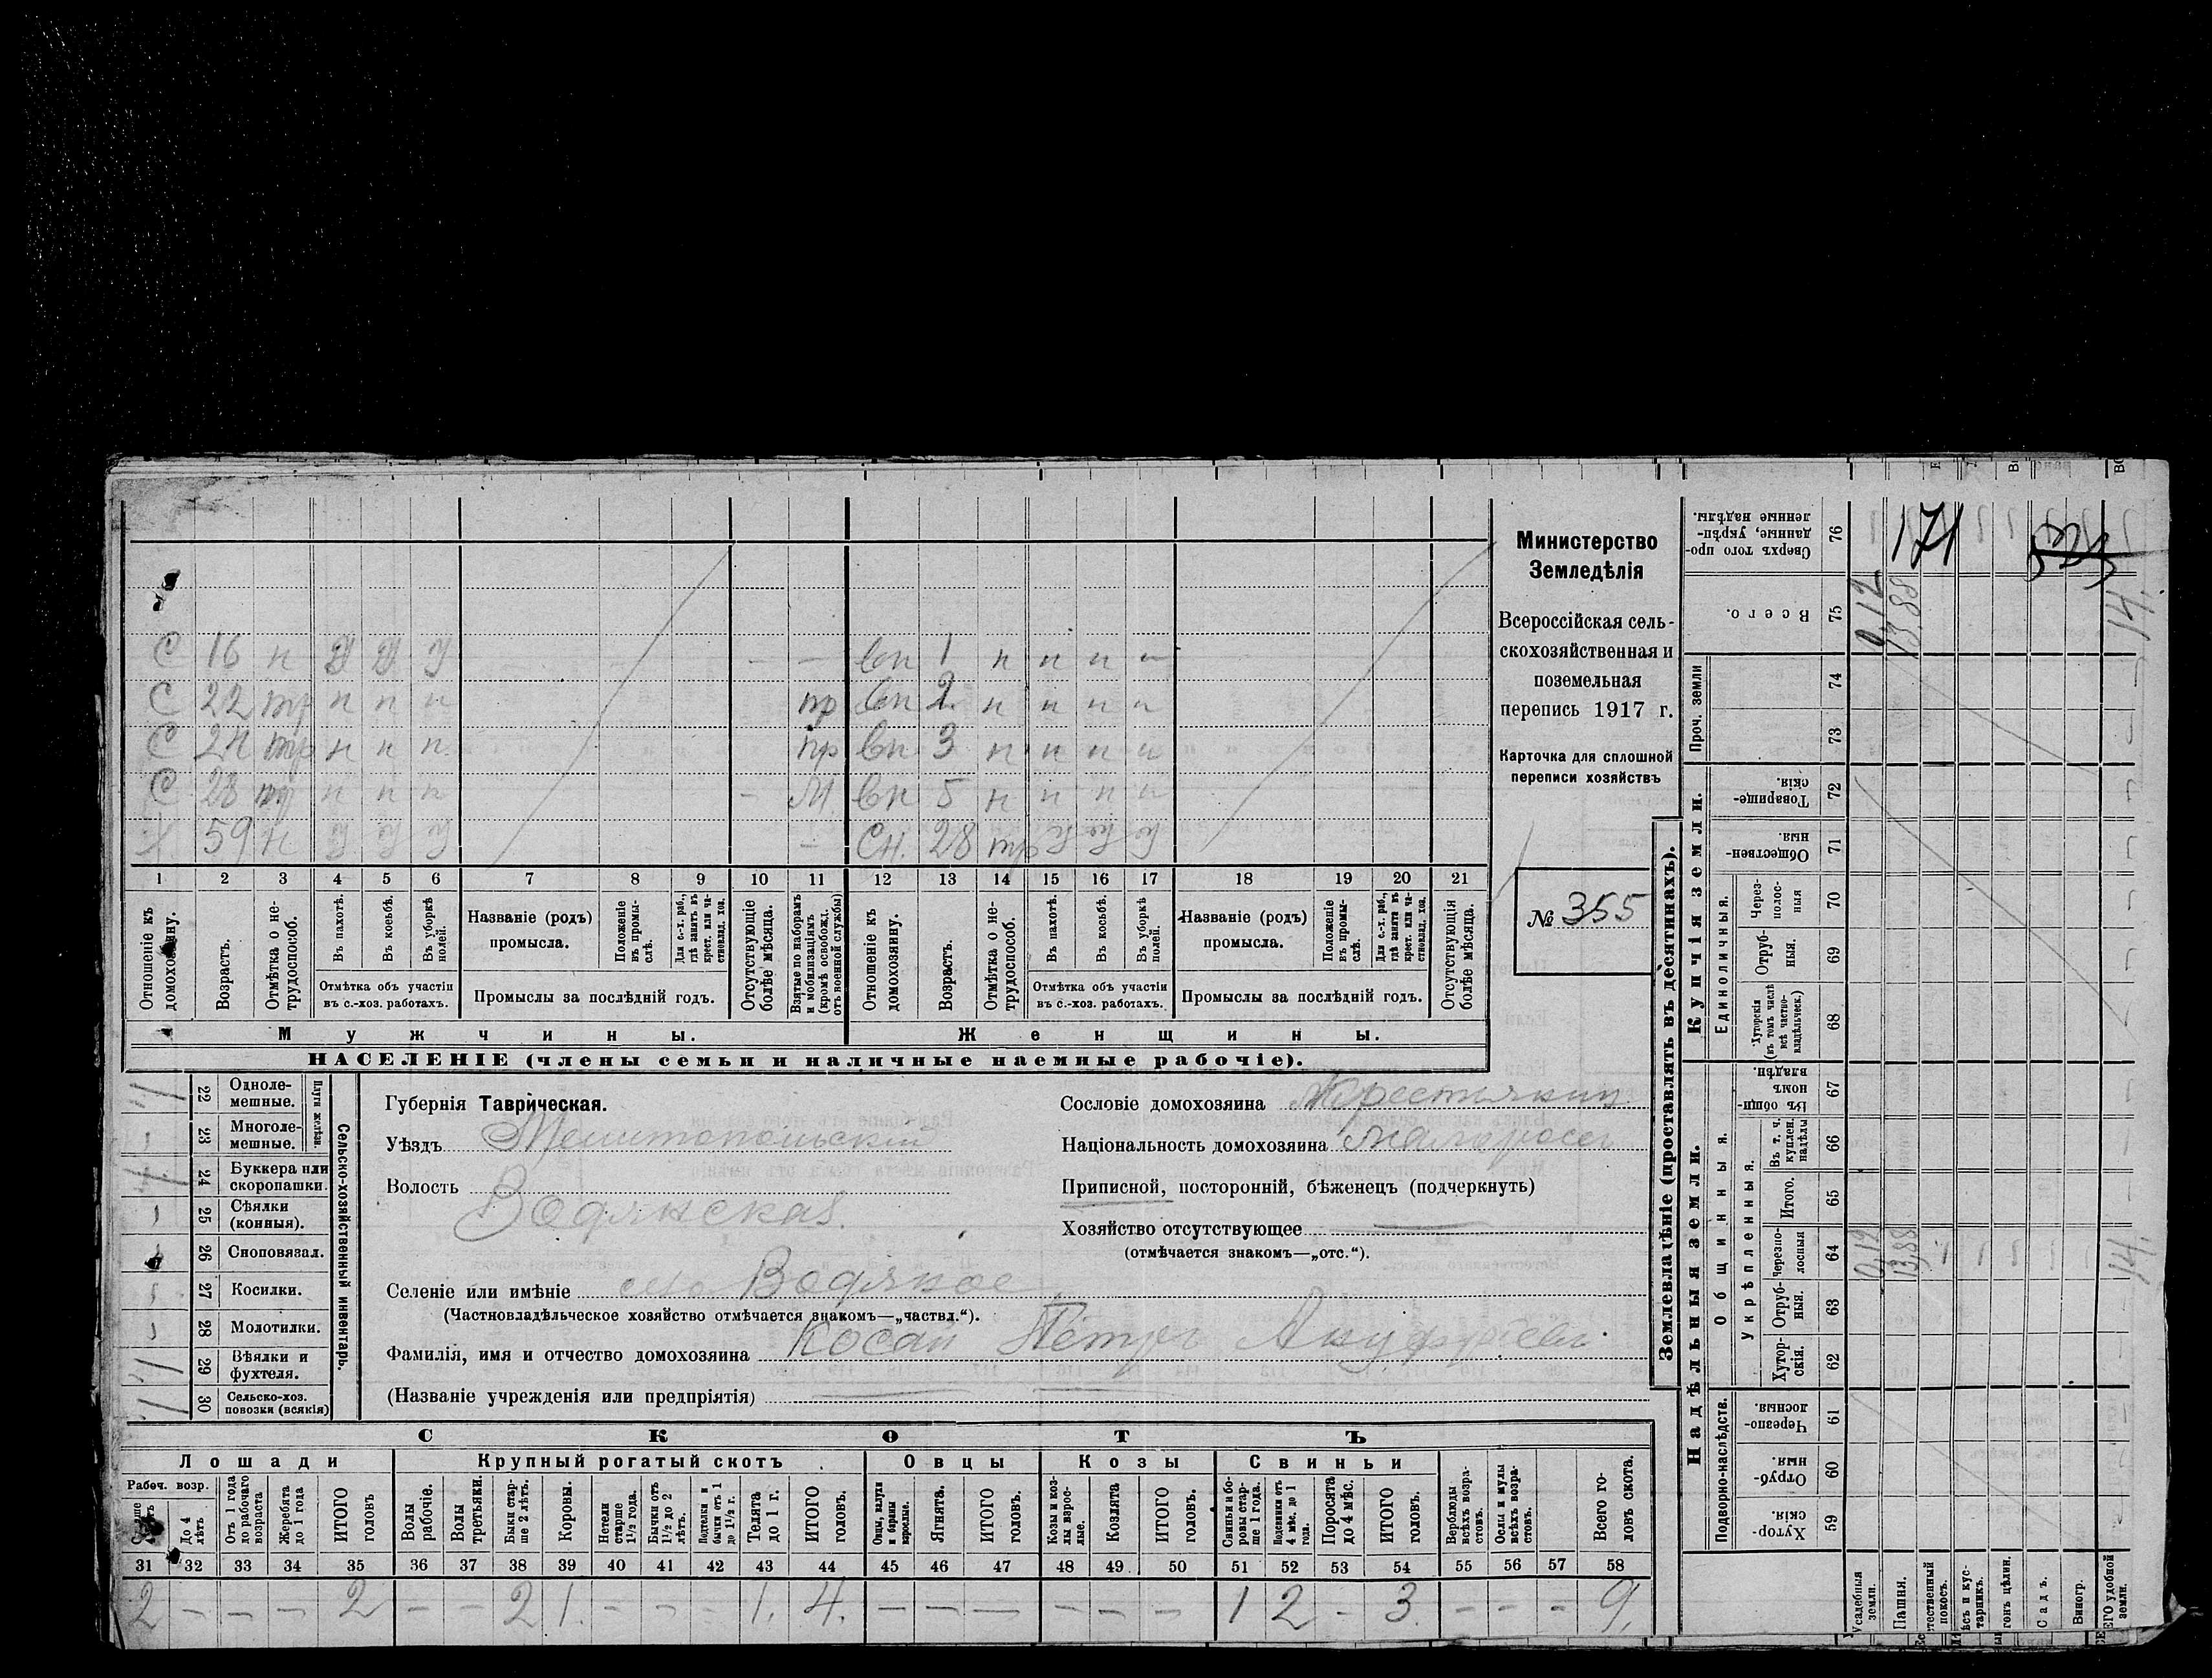 С 16 н У У У — — вн 1 н н н н
С 22 тр н н н пр вн 2 н н н н
С 24 тр н н н пр вн 3 н н н н
С 28 тр н н н — М. вн 5 н н н н
Х 59 н У У У — Сн. 28 тр У У У
1 2 3 4 5 6 7 8 9 10 11 12 13 14 15 16 17 18 19 20 21
Отношеніе къ домохозяину.
Возрастъ.
Отмѣтка о не-
трудоспособ.
Въ пахотѣ.
Въ косьбѣ.
Въ уборкѣ
полей.
Отмѣтка объ участіи
въ с.-хоз. работахъ.
Названіе (родъ)
промысла.
Положеніе
въ промы-
слѣ.
Для с.-х. раб.,
гдѣ занятъ въ
крест. или ча-
стновлад. хоз.
Промыслы за послѣдній годъ.
Отсутствующіе
болѣе мѣсяца.
Взятые по наборамъ
и мобилизаціямъ
(кромѣ освобожд.
отъ военной службы)
Отношеніе къ
домохозяину.
Возрастъ.
Отмѣтка о не-
трудоспособ.
Въ пахотѣ.
Въ косьбѣ.
Въ уборкѣ
полей.
Отмѣтка объ участіи
въ с.-хоз. работахъ.
Названіе (родъ)
промысла.
Положеніе
въ промы-
слѣ.
Для с.-х. раб.,
гдѣ занята въ
крест. или ча-
стновлад. хоз.
Промыслы за послѣдній годъ.
Отсутствующія
болѣе мѣсяца.
Мужчины. Женщины.
НАСЕЛЕНІЕ (члены семьи и наличные наемные рабочіе).
Министерство
Земледѣлія
Всероссійская сель-
скохозяйственная и
поземельная
перепись 1917 г.
Карточка для сплошной
переписи хозяйствъ
№ 355
22 Одноле-
мешные.
23 Многоле-
мешные.
Плуги желѣзн.
24 Буккера или
скоропашки.
25 Сѣялки
(конныя).
26 Сноповязал.
27 Косилки.
28 Молотилки.
29 Вѣялки и
фухтеля.
30 Сельско-хоз.
повозки (всякія)
Сельско-хозяйственный инвентарь.
Губернія Таврическая.
Уѣздъ Мелитопольскій
Волость Водянская.
Селеніе или имѣніе село Водяное
(Частновладѣльческое хозяйство отмѣчается знакомъ—„частвл.“).
Фамилія, имя и отчество домохозяина Косай Петръ
(Названіе учрежденія или предпріятія)
Сословіе домохозяина Крестьянин
Національность домохозяина малоросъ
Приписной, посторонній, бѣженецъ (подчеркнуть)
Хозяйство отсутствующее
(отмѣчается знакомъ—„отс.“).
СКОТЪ
Лошади Крупный рогатый скотъ Овцы Козы Свиньи
Рабоч. возр.
До 4
лѣтъ
Отъ 1 года
до рабочаго
возраста
Жеребята
до 1 года
ИТОГО
головъ
Волы
рабочіе.
Волы
третьяки.
Быки стар-
ше 2 лѣтъ.
Коровы.
Нетели
старше
1½ года.
Бычки отъ
1½ до 2
лѣтъ.
Подтелки и
бычки отъ 1
до 1½ г.
Телята
до 1 г.
ИТОГО
головъ.
Овцы, валухи
и бараны
взрослые.
Ягнята.
ИТОГО
головъ.
Козы и коз-
лы взрос-
лые.
Козлята
ИТОГО
головъ.
Свиньи и бо-
ровы стар-
ше 1 года.
Подсвинки отъ
4 мѣс. до 1
года.
Поросята
до 4 мѣс.
ИТОГО
головъ.
Верблюды
всѣхъ возра-
стовъ.
Ослы и мулы
всѣхъ возра-
стовъ.
Всего го-
ловъ скота.
31 32 33 34 35 36 37 38 39 40 41 42 43 44 45 46 47 48 49 50 51 52 53 54 55 56 57 58
2 — — — 2 — — 2 1. — — — 1. 4. — — — — — — 1 2 - 3. — — — 9.
Землевладѣніе (проставлять въ десятинахъ).
Надѣльныя земли. Купчія земли. Проч. земли
Подворно-наслѣдств.
Общинныя.
Укрѣпленныя.
Единоличныя.
Хутор-
скія. 59
Отруб-
ныя. 60
Черезпо-
лосныя. 61
Хутор-
скія. 62
Отруб-
ныя. 63
Черезпо-
лосныя 64
Итого. 65
Въ т. ч.
куплен.
надѣлы 66
Въ общин-
номъ
владѣн. 67
Хуторскія
(въ томъ числѣ
всѣ частно-
владѣльческ.) 68
Отруб-
ныя. 69
Через-
полос-
ныя 70
Обществен-
ныя. 71
Товарище-
скія. 72
73
74
Всего. 75
Сверхъ того про-
данные, укрѣп-
ленные надѣлы. 76
0,12 13,88 14.
0,12 13,88 14.
171
Усадебныя
земли.
Пашня.
Садъ.
Виногр.